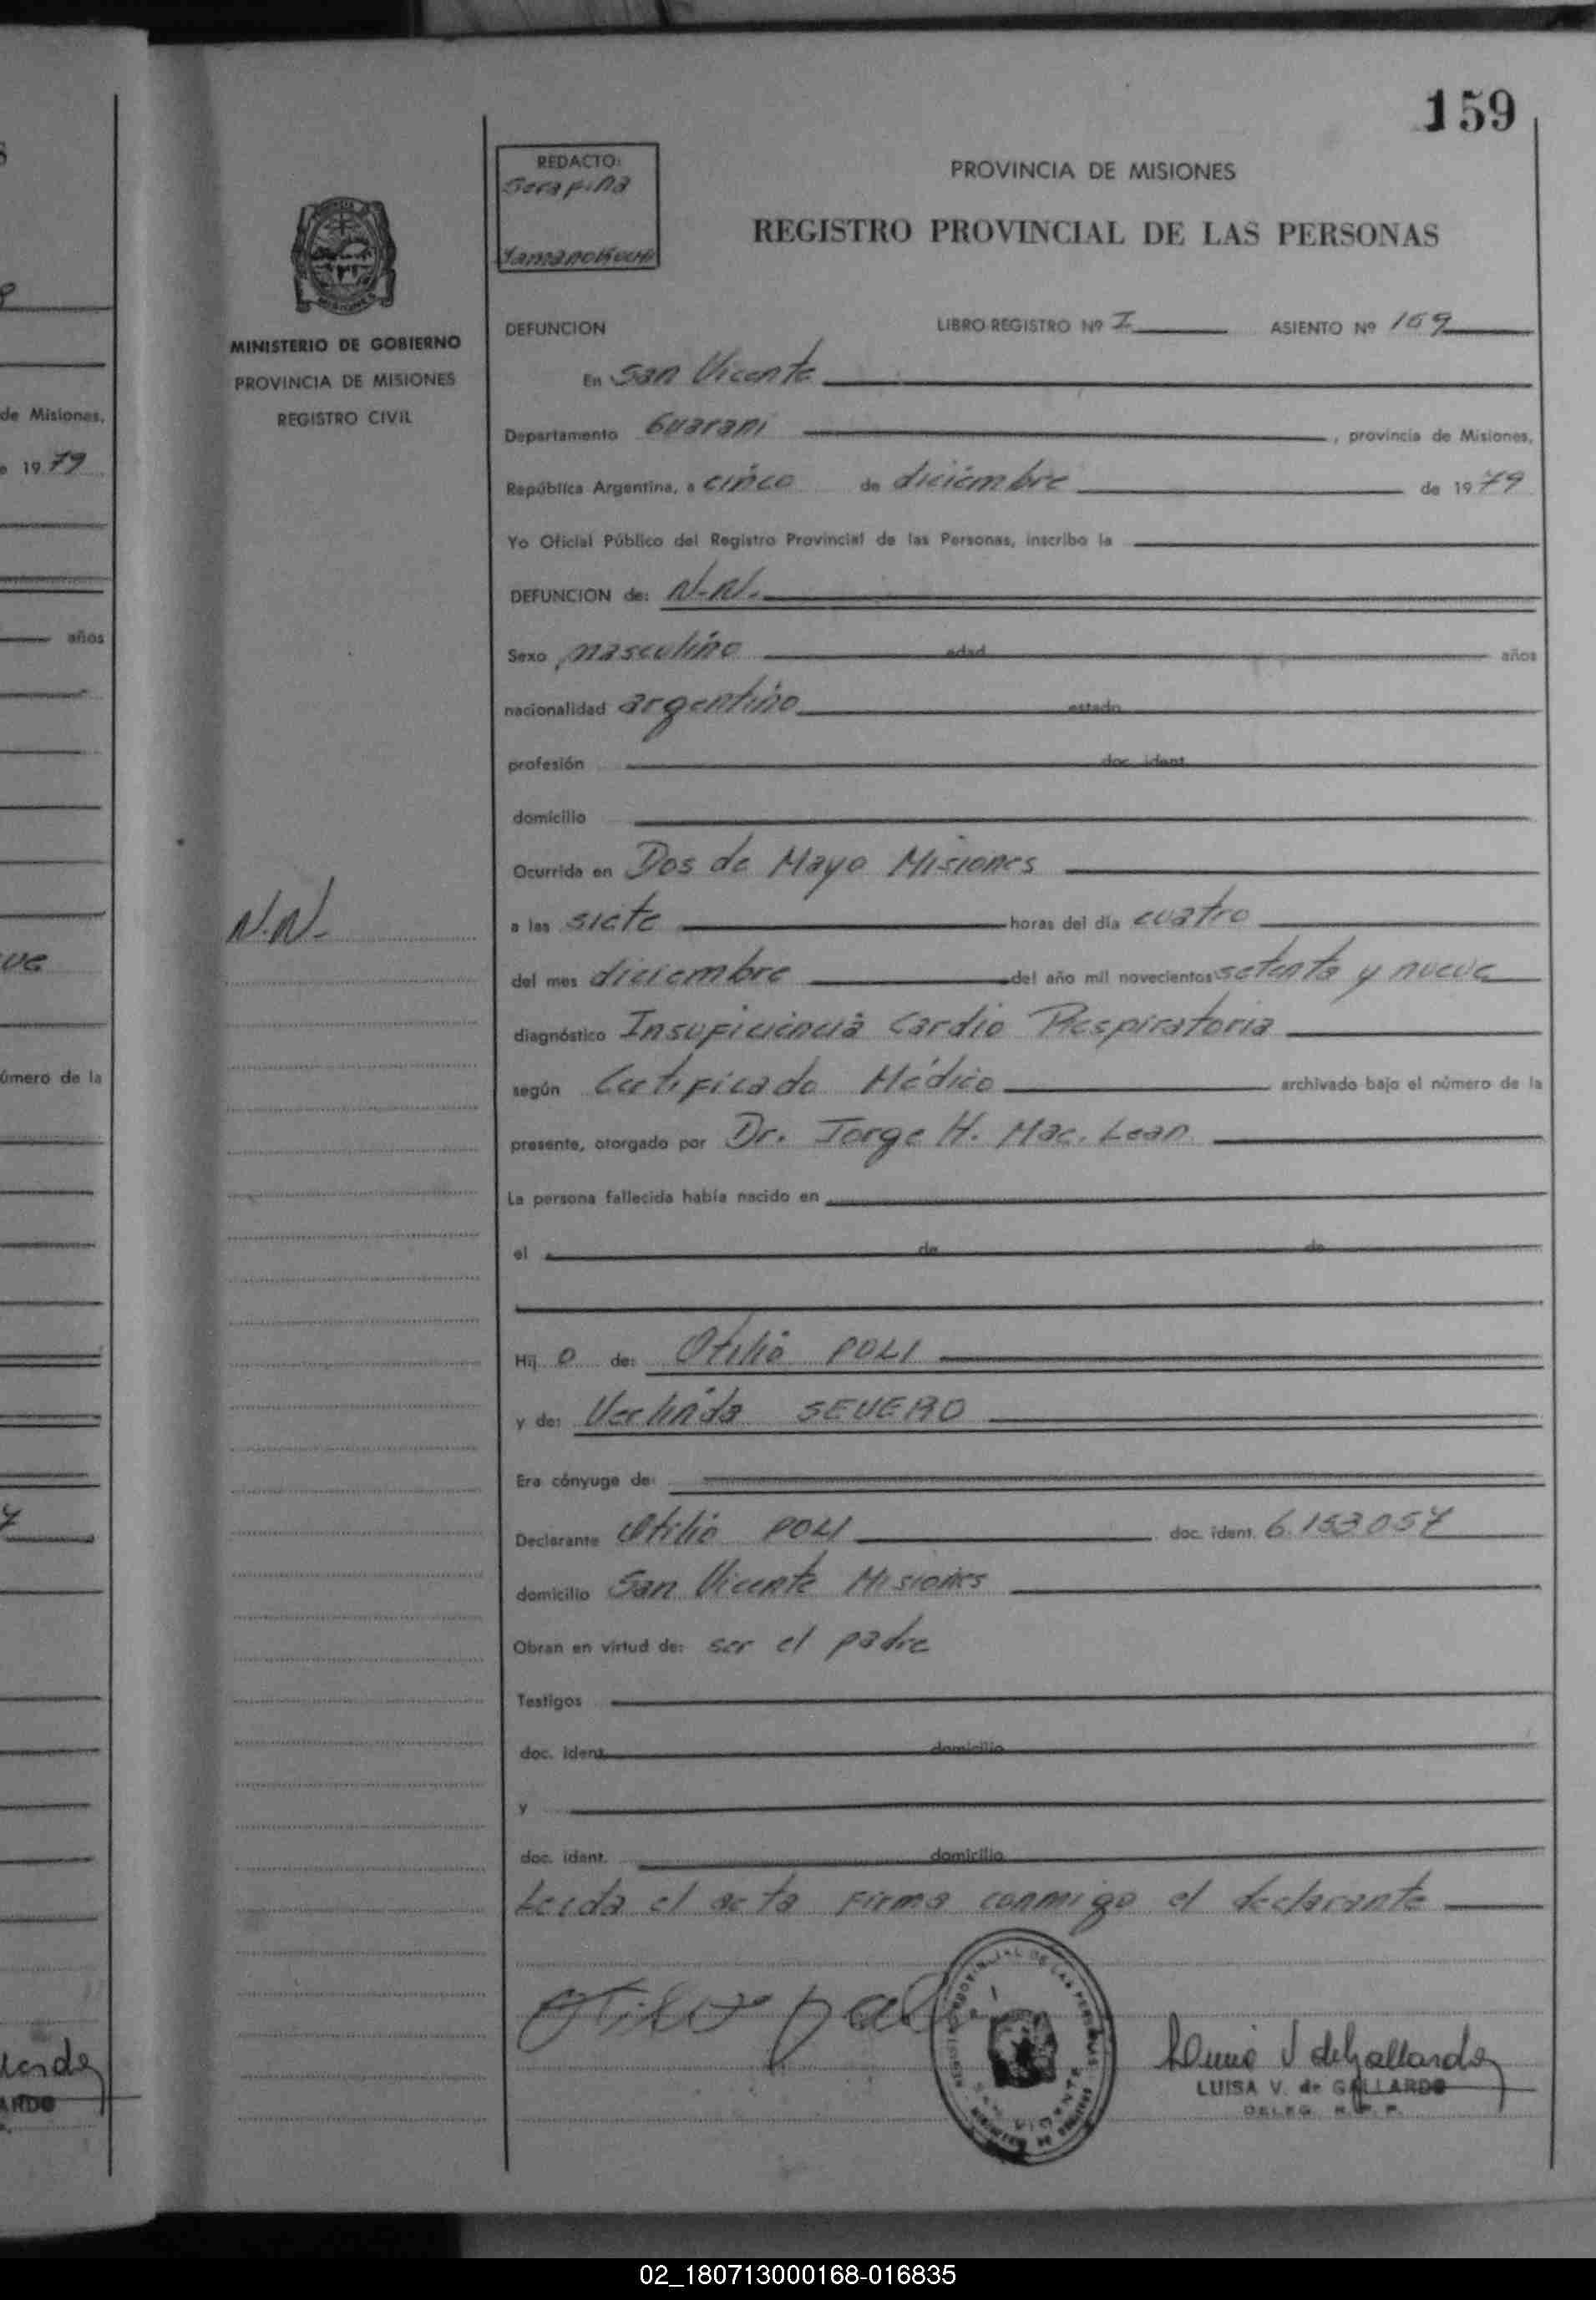 159
REDACTO:
Serafina
Yamanokuchi
PROVINCIA DE MISIONES
REGISTRO PROVINCIAL DE LAS PERSONAS
MINISTERIO DE GOBIERNO
PROVINCIA DE MISIONES
REGISTRO CIVIL
DEFUNCION LIBRO-REGISTRO Nº I ASIENTO Nº 159
En San Vicente
Departamento Guaraní, provincia de Misiones,
República Argentina, a cinco de diciembre de 1979
Yo Oficial Público del Registro Provincial de las Personas, inscribo la
DEFUNCION de: N.N.
Sexo masculino edad años
nacionalidad argentino estado
profesión doc. ident.
domicilio
Ocurrida en Dos de Mayo Misiones
N.N.
a las siete horas del día cuatro
del mes diciembre del año mil novecientos setenta y nueve
diagnóstico Insuficiencia Cardio Respiratoria
según Certificado Médico archivado bajo el número de la
presente, otorgado por Dr. Jorge H. Mac. Lean
La persona fallecida había nacido en
el de de
Hij o de: Otilio POLI
y de: Verlinda SEVERO
Era cónyuge de:
Declarante Otilio POLI doc. ident. 6.153.057
domicilio San Vicente Misiones
Obran en virtud de: ser el padre
Testigos
doc. ident. domicilio
y
doc. ident. domicilio
Leída el acta firma conmigo el declarante
LUISA V. de GALLARDO
DELEG. R. P. P.
de Misiones,
e 1979
años
número de la
02_180713000168-016835